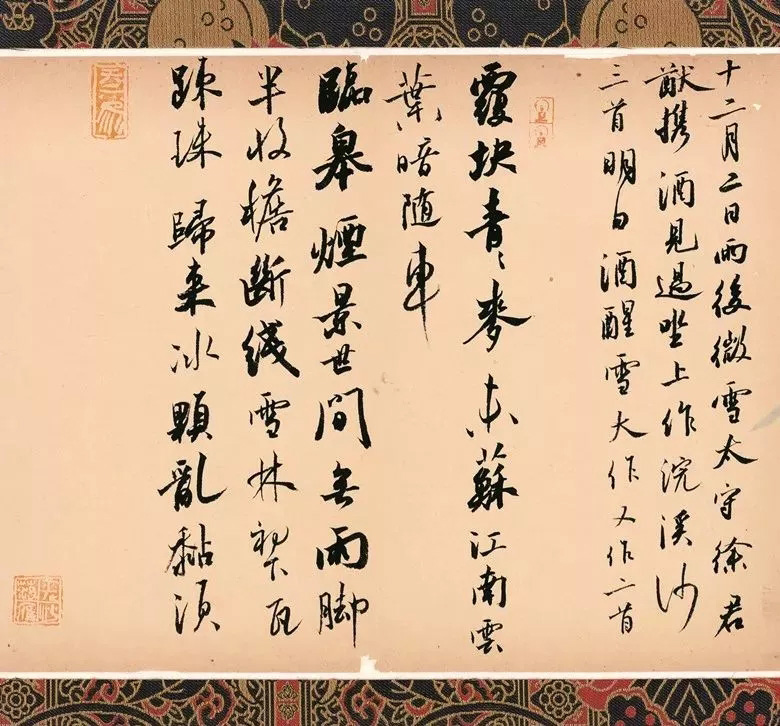 十二月二日雨後微雪太守徐君
猷携酒見過坐上作浣溪沙
三首明日酒醒雪大作又作二首
覆块青々麥未蘇江南雲
葉暗隨車
臨皋煙景世間無雨脚
半收檐斷线雪林初下瓦
踈珠歸来冰顆亂黏須